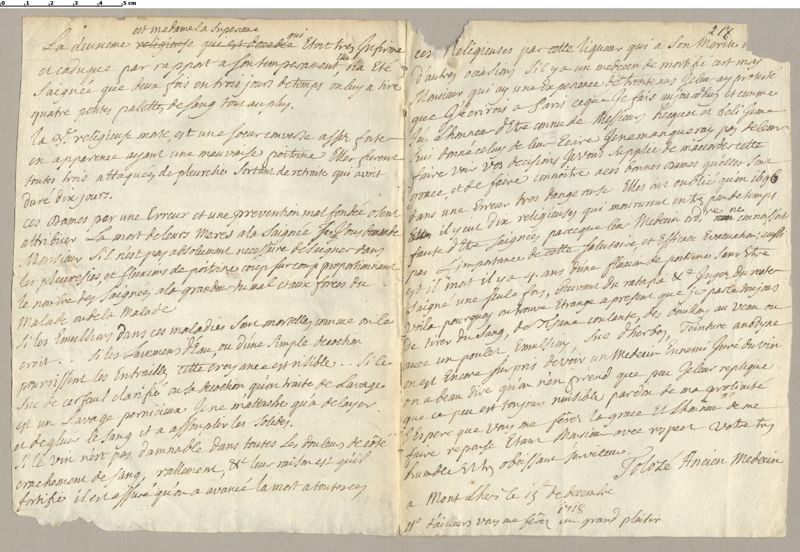 est madame la superieure
La deuxieme religieuse qui est decedée qui Etoit tres Infirme
et caduque par rapport a son temperament elle n'a Eté
Saignée que deux fois en trois jours de temps on luy a tiré
quatre petites palettes de Sang tout au plus.
la 3e. religieuse morte, est une soeur converse assez forte
en apparence ayant une mauvaise poitrine Elles furent
toutes trois attaquées de pleuresies Sortant de retraite qui avoit
duré dix jours.
ces Dames par une Erreur et une prevention mal fondée osent
attribuer La mort de leurs Meres a la Saignée
Monsieur S'il n'est pas absolument necessaire de Saigner dans
les pleuresies et fluxions de poitrine coup sur coup proportionnant
le nombre des Saignées a la grandeur du mal et aux forces du
Malade ou de la Malade
Si les Emulsions dans ces maladies Sont mortelles comme on le
croit . . . Si les Lavemens d'Eau, ou d'une simple decoction
pourrissent les Entrailles cette croyance est risible . . . Si le
Suc de cerfeuil clarifié ou la decoction qu'on traite de Lavage
est un Lavage pernicieux Je ne m'attache qu'a delayer
et degluer le Sang et a assouplir les Solides.
Si le vin n'est pas damnable dans toutes les douleurs de côté
crachement de sang, rallement, &c leur raison est qu'il
fortifie il est assuré qu'on a avancé la mort a toutes ces
217
ces Religieuses par cette liqueur qui a Son Merite
d'autres occasions S'il y a un medecin de mortifié c'est moy
Monsieur qui ay une Experience de trente ans Je leur ay protesté
que J'Ecrirois a Paris ce que Je fais aujourdhuy et comme
J'ai l'honneur d'Etre connu de Messieurs Hecquet et
Suis donné celuy de leur Ecrire Je ne manqueray pas de leur
faire voir vos decisions Je vous Supplie de m'accorder cette
grace, et de faire connoitre a ces bonnes Dames qu'elles Sont
dans une Erreur tres dangereuse Elles ont oublié qu'en 1696
il y eut dix religieuses qui moururent en tres peu de temps
faute d'Etre Saignées parceque leur Medecin ordre ne connoissant
pas l'importance de cette Salutaire et Efficace Evacuation; aussi
est il mort il y a 4 ans d'une fluxion de poitrine Sans Etre
Saigné une seule fois, et beuvant du ratafia &c Jugez du reste
Voila pourquoy on trouve Etrange a present que Je parle toujours
de tirer du Sang, de Tisane coulante, de bouillon au veau ou
avec un poulet Emulsion, Suc d'herbes, Teinture anodyne
on est Encore surpris de voir un Medecin Ennemi Juré du vin
on a beau dire qu'on n'en prend que peu Je leur replique
que ce peu est toujours nuisible pardon de ma prolixité
J'espere que vous me ferez la grace et l'honneur de me
faire reponse Etant Monsieur avec respect Votre tres
humble Et tres obeissant Serviteur
Tolozé Ancien Medecin
a Mont Lhery le 15 de decembre
1718
d'ailleurs vous me ferez un grand plaisir